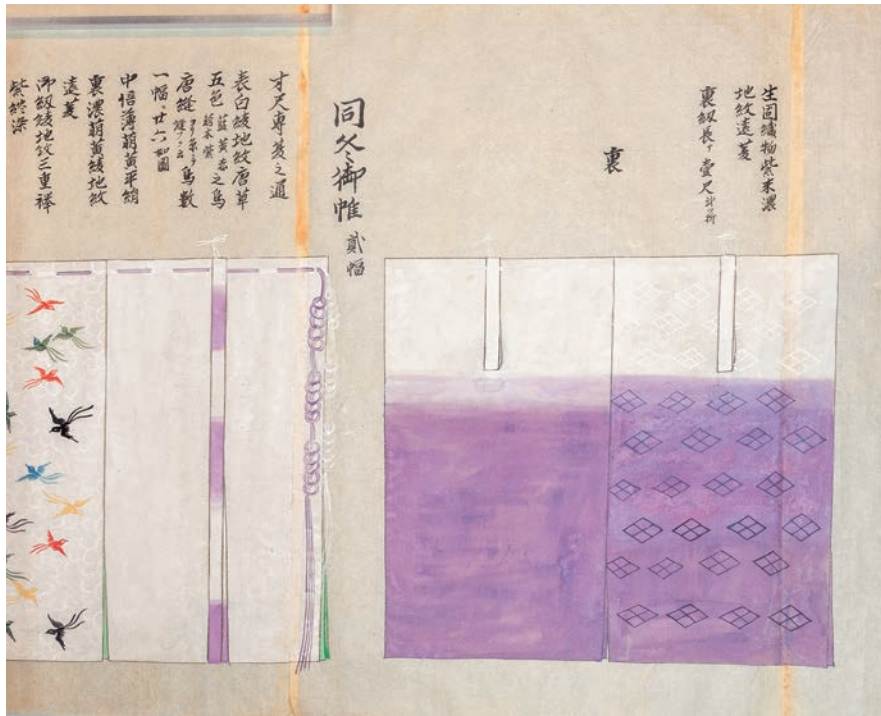 生固織物紫末濃
地紋遠菱
裏紐長サ壹尺
裏
同冬御帷 貳幅
寸尺専夏之通
表白綾地紋唐草
五色 藍黄赤 萌木紫 之鳥
唐縫 鳥数
一幅ニ廿六如圖
中倍薄萌黄平絹
裏濃萌黄綾地紋
遠菱
御紐綾地紋三重襷
紫